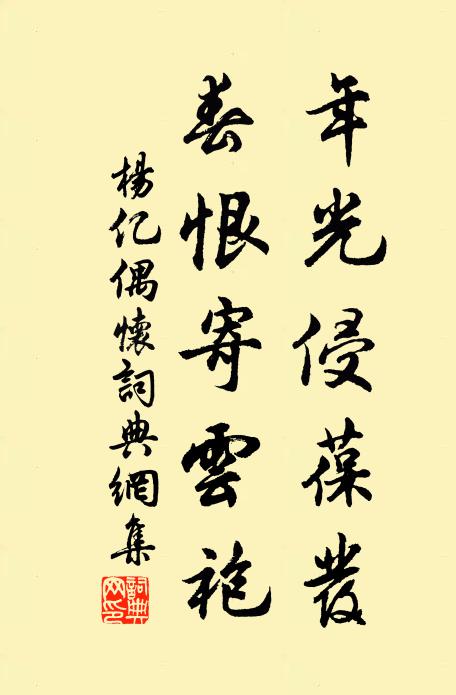 年光侵葆發
春恨寄雲袍
楊亿偶懷詞典網集
詞典
网印